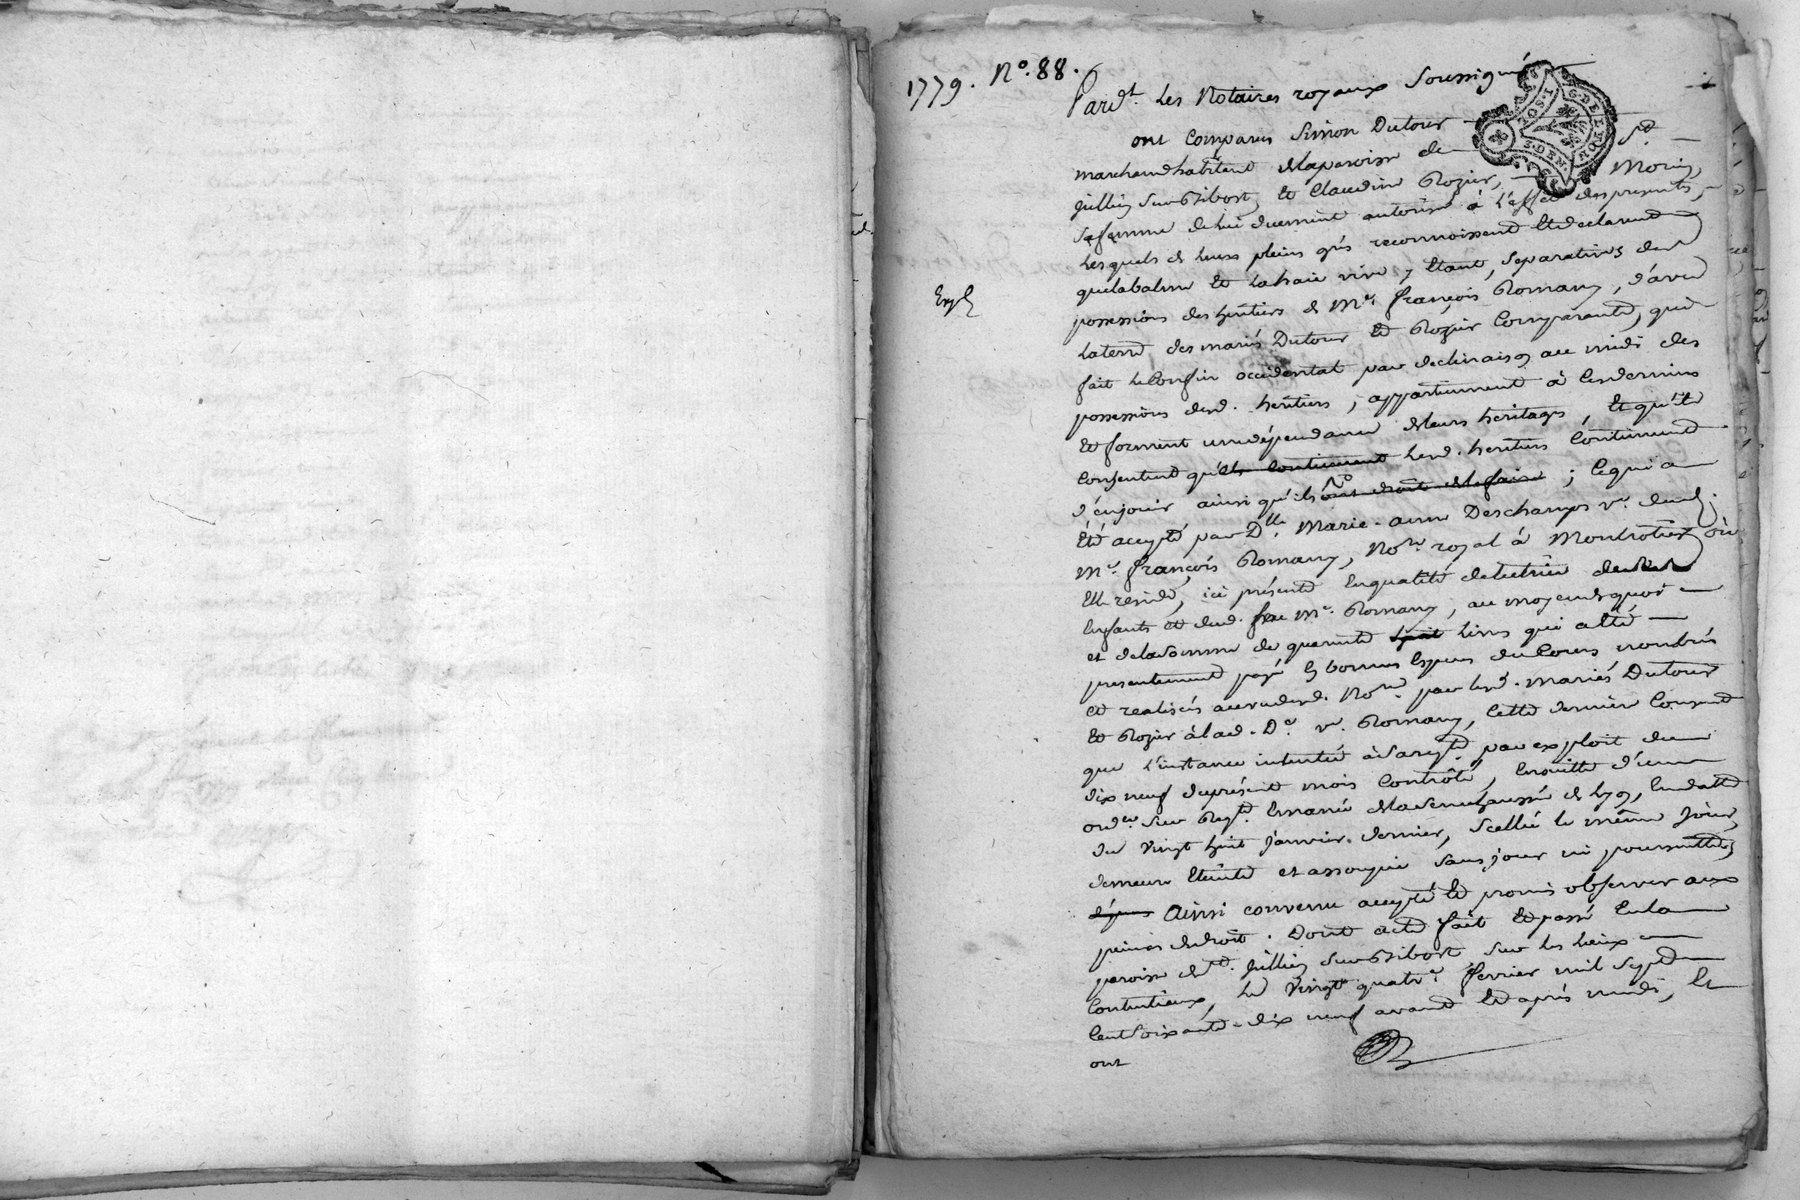 1779. N.º 88.
Pard.t les Notaires royaux soussignés
G. DE LYON 1. SOL 3. DEN
ont comparus Simon Dutour
marchand habitant dela paroisse de St.
Jullien Sur Bibost, et Claudine Rozier,
sa femme de lui duement autorisée à l'effet des presentes,
Lesquels de leurs pleins grés reconnoissent et declarent
que la balme et la haie vive y étant, séparatives des
possessions des héritiers de Me. françois Romany, d'avec
la terre des mariés Dutour et Rozier comparants, qui
fait le confin occidental par declinaison au midi des
possessions desd. héritiers, appartiennent à ces derniers
et forment une dépendance de leurs héritages, et qu'ils
consentent qu'ils continuent lesd. héritiers continuent
d'en jouir ainsi qu'ils ont droit de le faire ; ce qui a
été accepté par Dlle. Marie-anne Deschamps ve. dud.
Me. françois Romany, No.re royal à Montrotier où
Elle reside, ici présente en qualité de tutrice de ses
enfants et dud. feu Me. Romany, au moyen de quoi
et de la somme de quarente huit livres qui a été
presentement payé en bonnes espèces du cours nombrés
et realisés au vu desd. No.res par lesd. mariés Dutour
et Rozier à lad. De. ve. Romany, cette dernière consent
que l'instance intentée à sa req.te par exploit du
dix neuf du présent mois contrôlé, ensuitte d'une
ord.ce sur Req.te émanée de la Senechaussée de Lyon, en datte
du vingt huit janvier dernier, scellée le même jour,
demeure éteinte et assoupie sans jour ni poursuittes
dépens Ainsi convenu accepté et promis observer aux
peines de droit. Dont acte fait et passé en la
paroisse de St. Jullien Sur Bibost sur les lieux
contentieux, le vingt quatre fevrier mil sept
cent soixante-dix neuf avant et après midi, et
ont